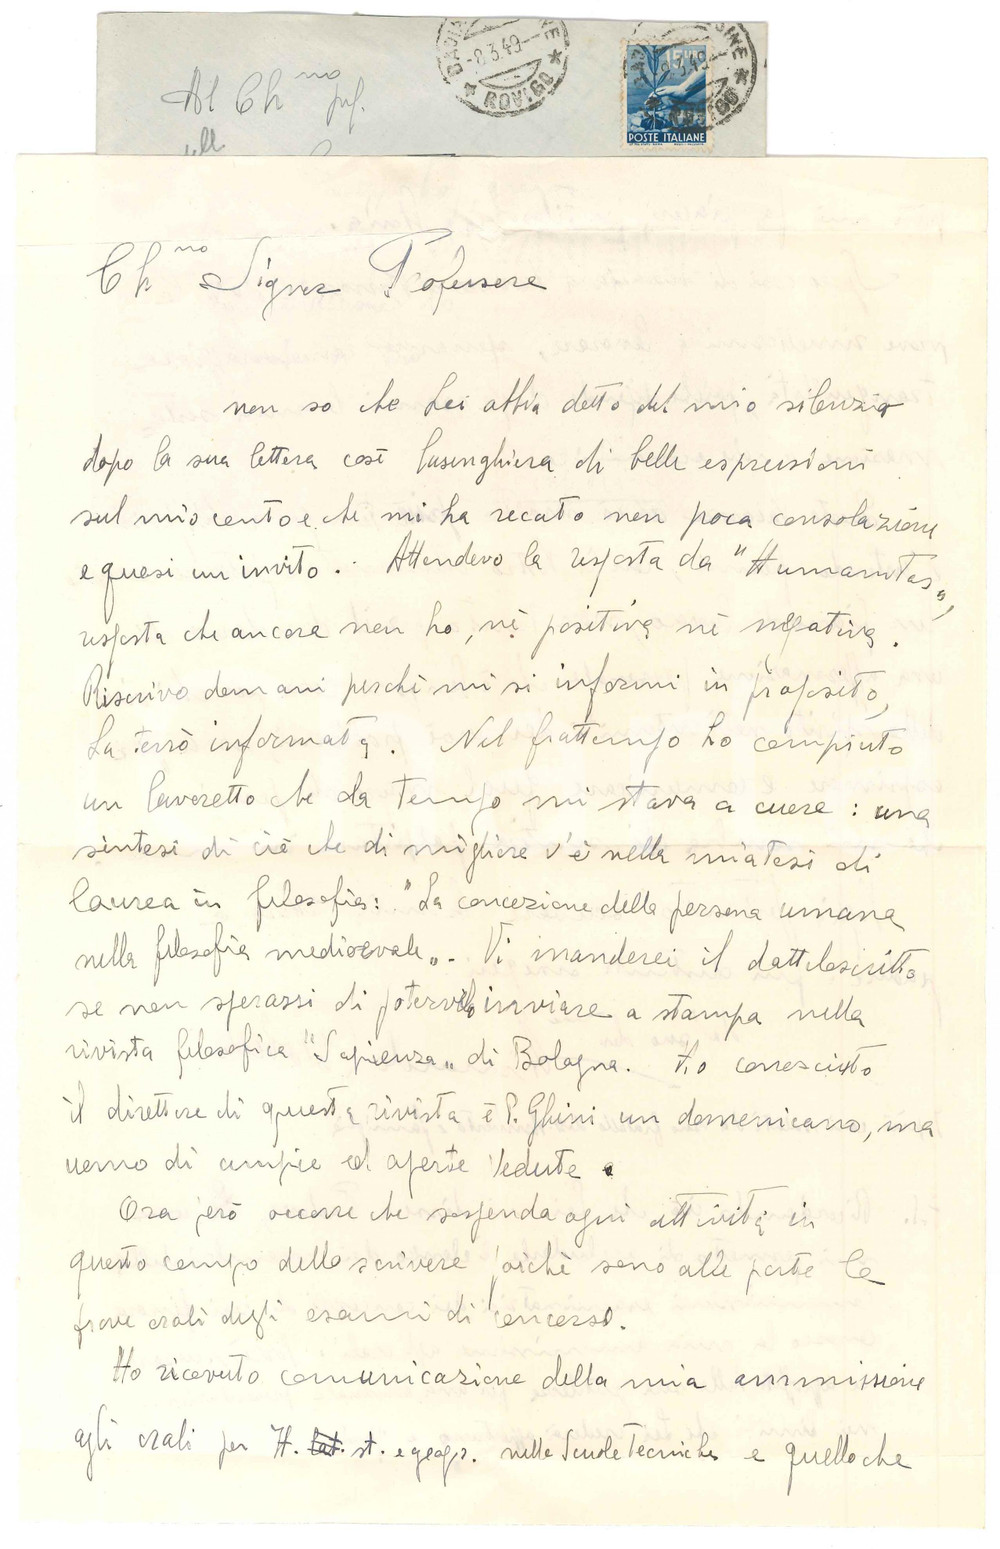 Al Ch no prof.
BADIA POLESINE
-8.3.49
★ ROVIGO ★
15 LIRE
POSTE ITALIANE
Ch no Signor Professore
non so che Lei abbia detto del mio silenzio
dopo la sua lettera così lusinghiera di belle espressioni
sul mio conto e che mi ha recato non poca consolazione
e quasi un invito. Attendevo la risposta da "Humanitas",
risposta che ancora non ho, nè positiva nè negativa.
Riscrivo domani perchè mi si informi in proposito,
La terrò informata. Nel frattempo ho compiuto
un lavoretto che da tempo mi stava a cuore: una
sintesi di ciò che di migliore v'è nella mia tesi di
laurea in filosofia: "La concezione della persona umana
nella filosofia medioevale". Vi manderei il dattiloscritto
se non sperassi di potervelo inviare a stampa nella
rivista filosofica "Sapienza" di Bologna. Ho conosciuto
il direttore di questa rivista è P. Ghini un domenicano, ma
uomo di ampie ed aperte vedute.
Ora però occorre che sospenda ogni attività in
questo campo dello scrivere poichè sono alle porte le
prove orali degli esami di concorso.
Ho ricevuto comunicazione della mia ammissione
agli orali per It. lat. st. e geogr. nelle Scuole Tecniche e quello che